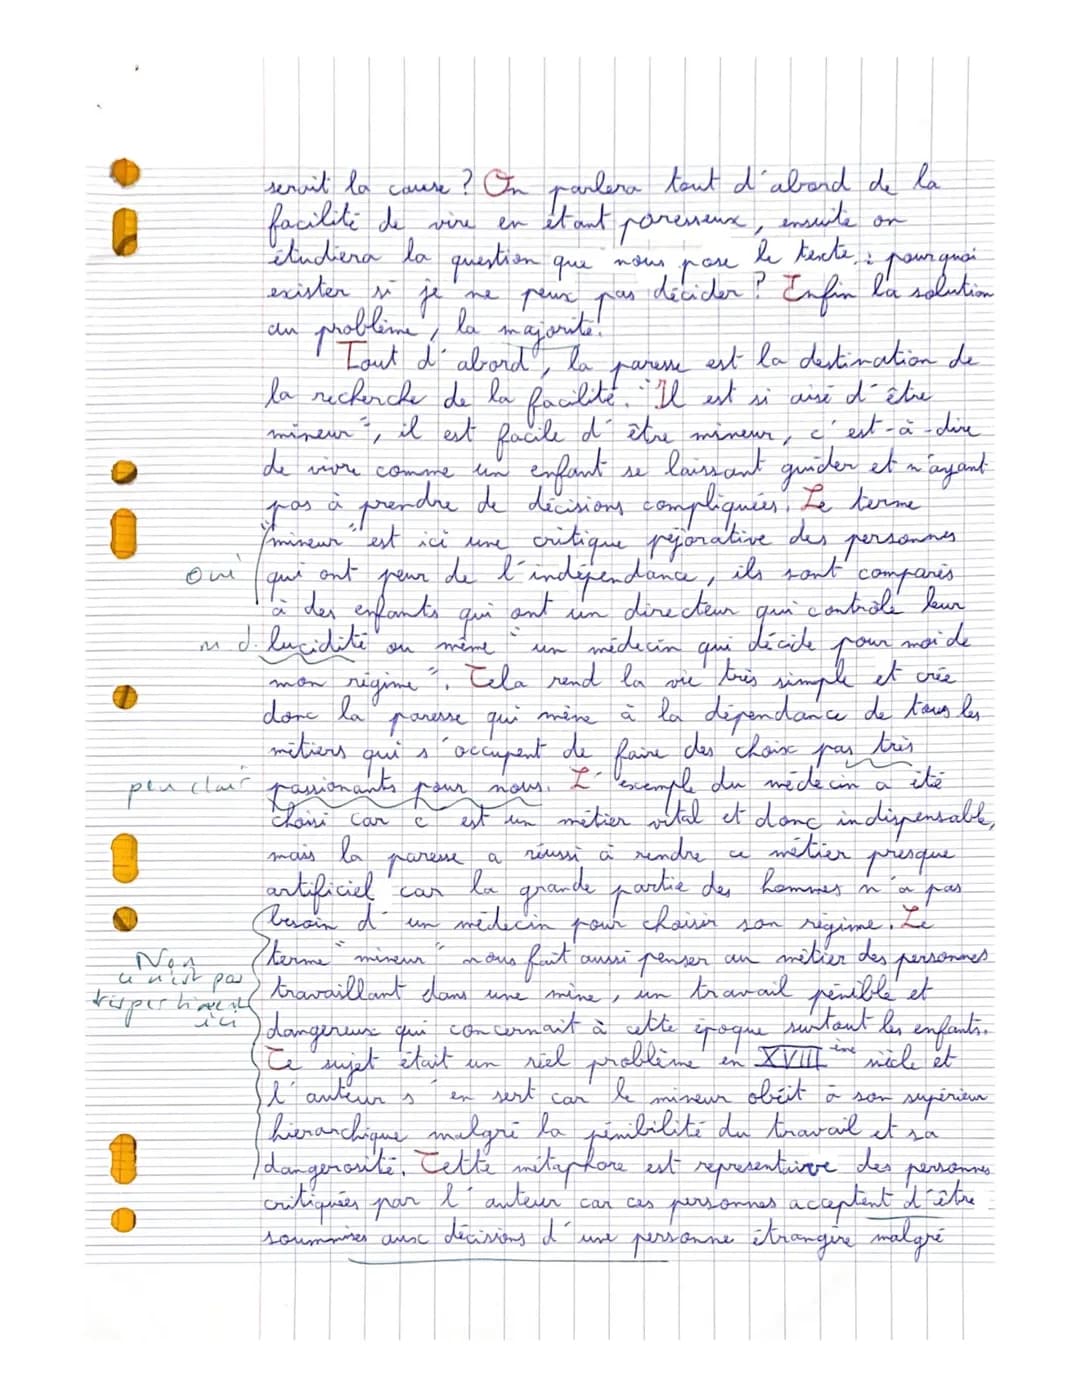 serait la cause ? On parlera tout d'abord de la
facilité de vire en étant paresseux, ensuite on
étudiera la question que nous pose le texte : pourquoi
exister si je ne peux pas décider ? Enfin la solution
au problème, la majorité.
Tout d'abord, la paresse est la destination de
la recherche de la facilité. "Il est si aisé d'être
mineur", il est facile d'être mineur, c'est-à-dire
de vivre comme un enfant se laissant guider et n'ayant
pas à prendre de décisions compliquées. Le terme
"mineur" est ici une critique péjorative des personnes
Oui qui ont peur de l'indépendance, ils sont comparés
à des enfants qui ont un directeur qui contrôle leur
m d. lucidité ou même "un médecin qui décide pour moi de
mon régime". Cela rend la vie très simple et crée
donc la paresse qui mène à la dépendance de tous les
métiers qui s'occupent de faire des choix pas très
peu clair passionants pour nous. L'exemple du médecin a été
choisi car c'est un métier vital et donc indispensable,
mais la paresse a réussi à rendre ce métier presque
artificiel car la grande partie des hommes n'a pas
besoin d'un médecin pour choisir son régime. Le
Non
terme "mineur" nous fait aussi penser au métier des personnes
ce n'est pas
très pertinent
ici
travaillant dans une mine, un travail pénible et
dangereux qui concernait à cette époque surtout les enfants.
Ce sujet était un réel problème en XVIIIème siècle et
l'auteur s'en sert car le mineur obéit à son supérieur
hierarchique malgré la pénibilité du travail et sa
dangerosité. Cette métaphore est representaive des personnes
critiquées par l'auteur car ces personnes acceptent d'être
soummises aux décisions d'une personne étrangère malgré